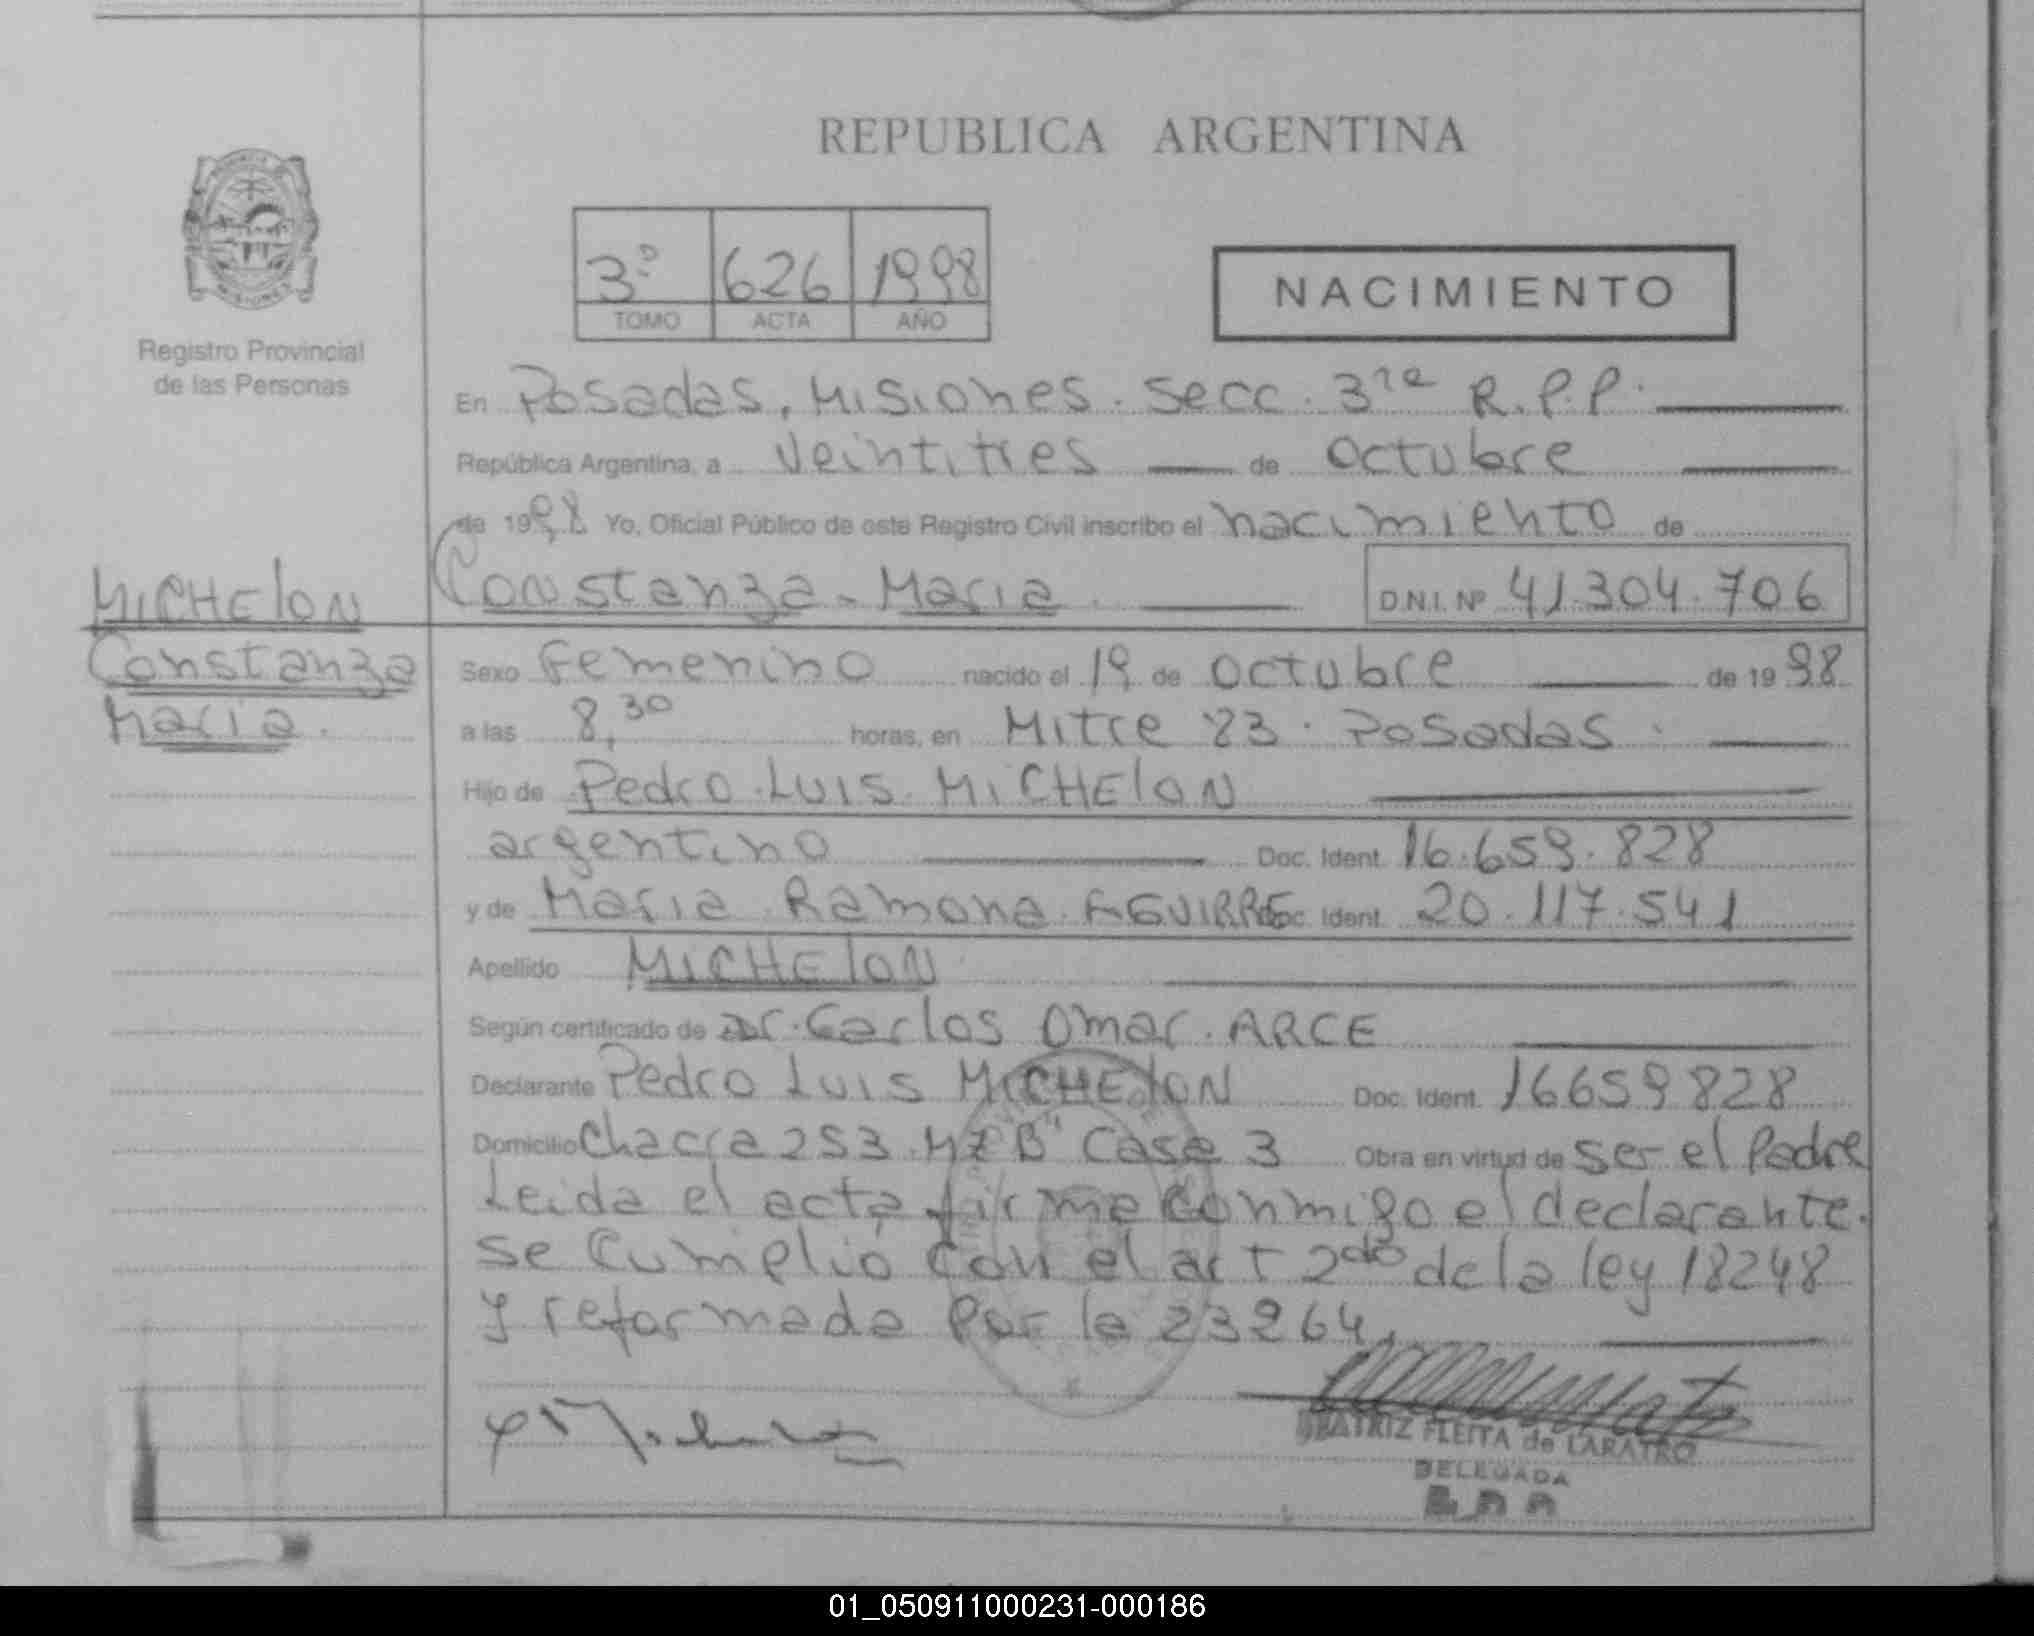 REPUBLICA ARGENTINA
3º 626 1998
TOMO ACTA AÑO
NACIMIENTO
MISIONES
Registro Provincial
de las Personas
En Posadas, Misiones. Secc. 3ra R.P.P.
República Argentina, a veintitres de octubre
de 1998 Yo, Oficial Público de este Registro Civil inscribo el nacimiento de
Constanza - Maria D.N.I. Nº 41.304.706
MICHElON
Constanza
Maria.
Sexo Femenino nacido el 19 de octubre de 1998
a las 8,30 horas, en Mitre 83. Posadas.
Hijo de Pedro Luis MICHElON
argentino Doc. Ident. 16.659.828
y de Maria Ramona AGUIRRE Doc. Ident. 20.117.541
Apellido MICHElON
Según certificado de dr. Carlos Omar ARCE
Declarante Pedro Luis MICHElON Doc. Ident. 16659828
Domicilio Chacra 253 Mz B" Casa 3 Obra en virtud de ser el Padre
Leida el acta firma conmigo el declarante.
se cumplió con el art 2do de la ley 18248
y reformada por la 23264.
BEATRIZ FLEITA de LARATRO
DELEGADA
01_050911000231-000186